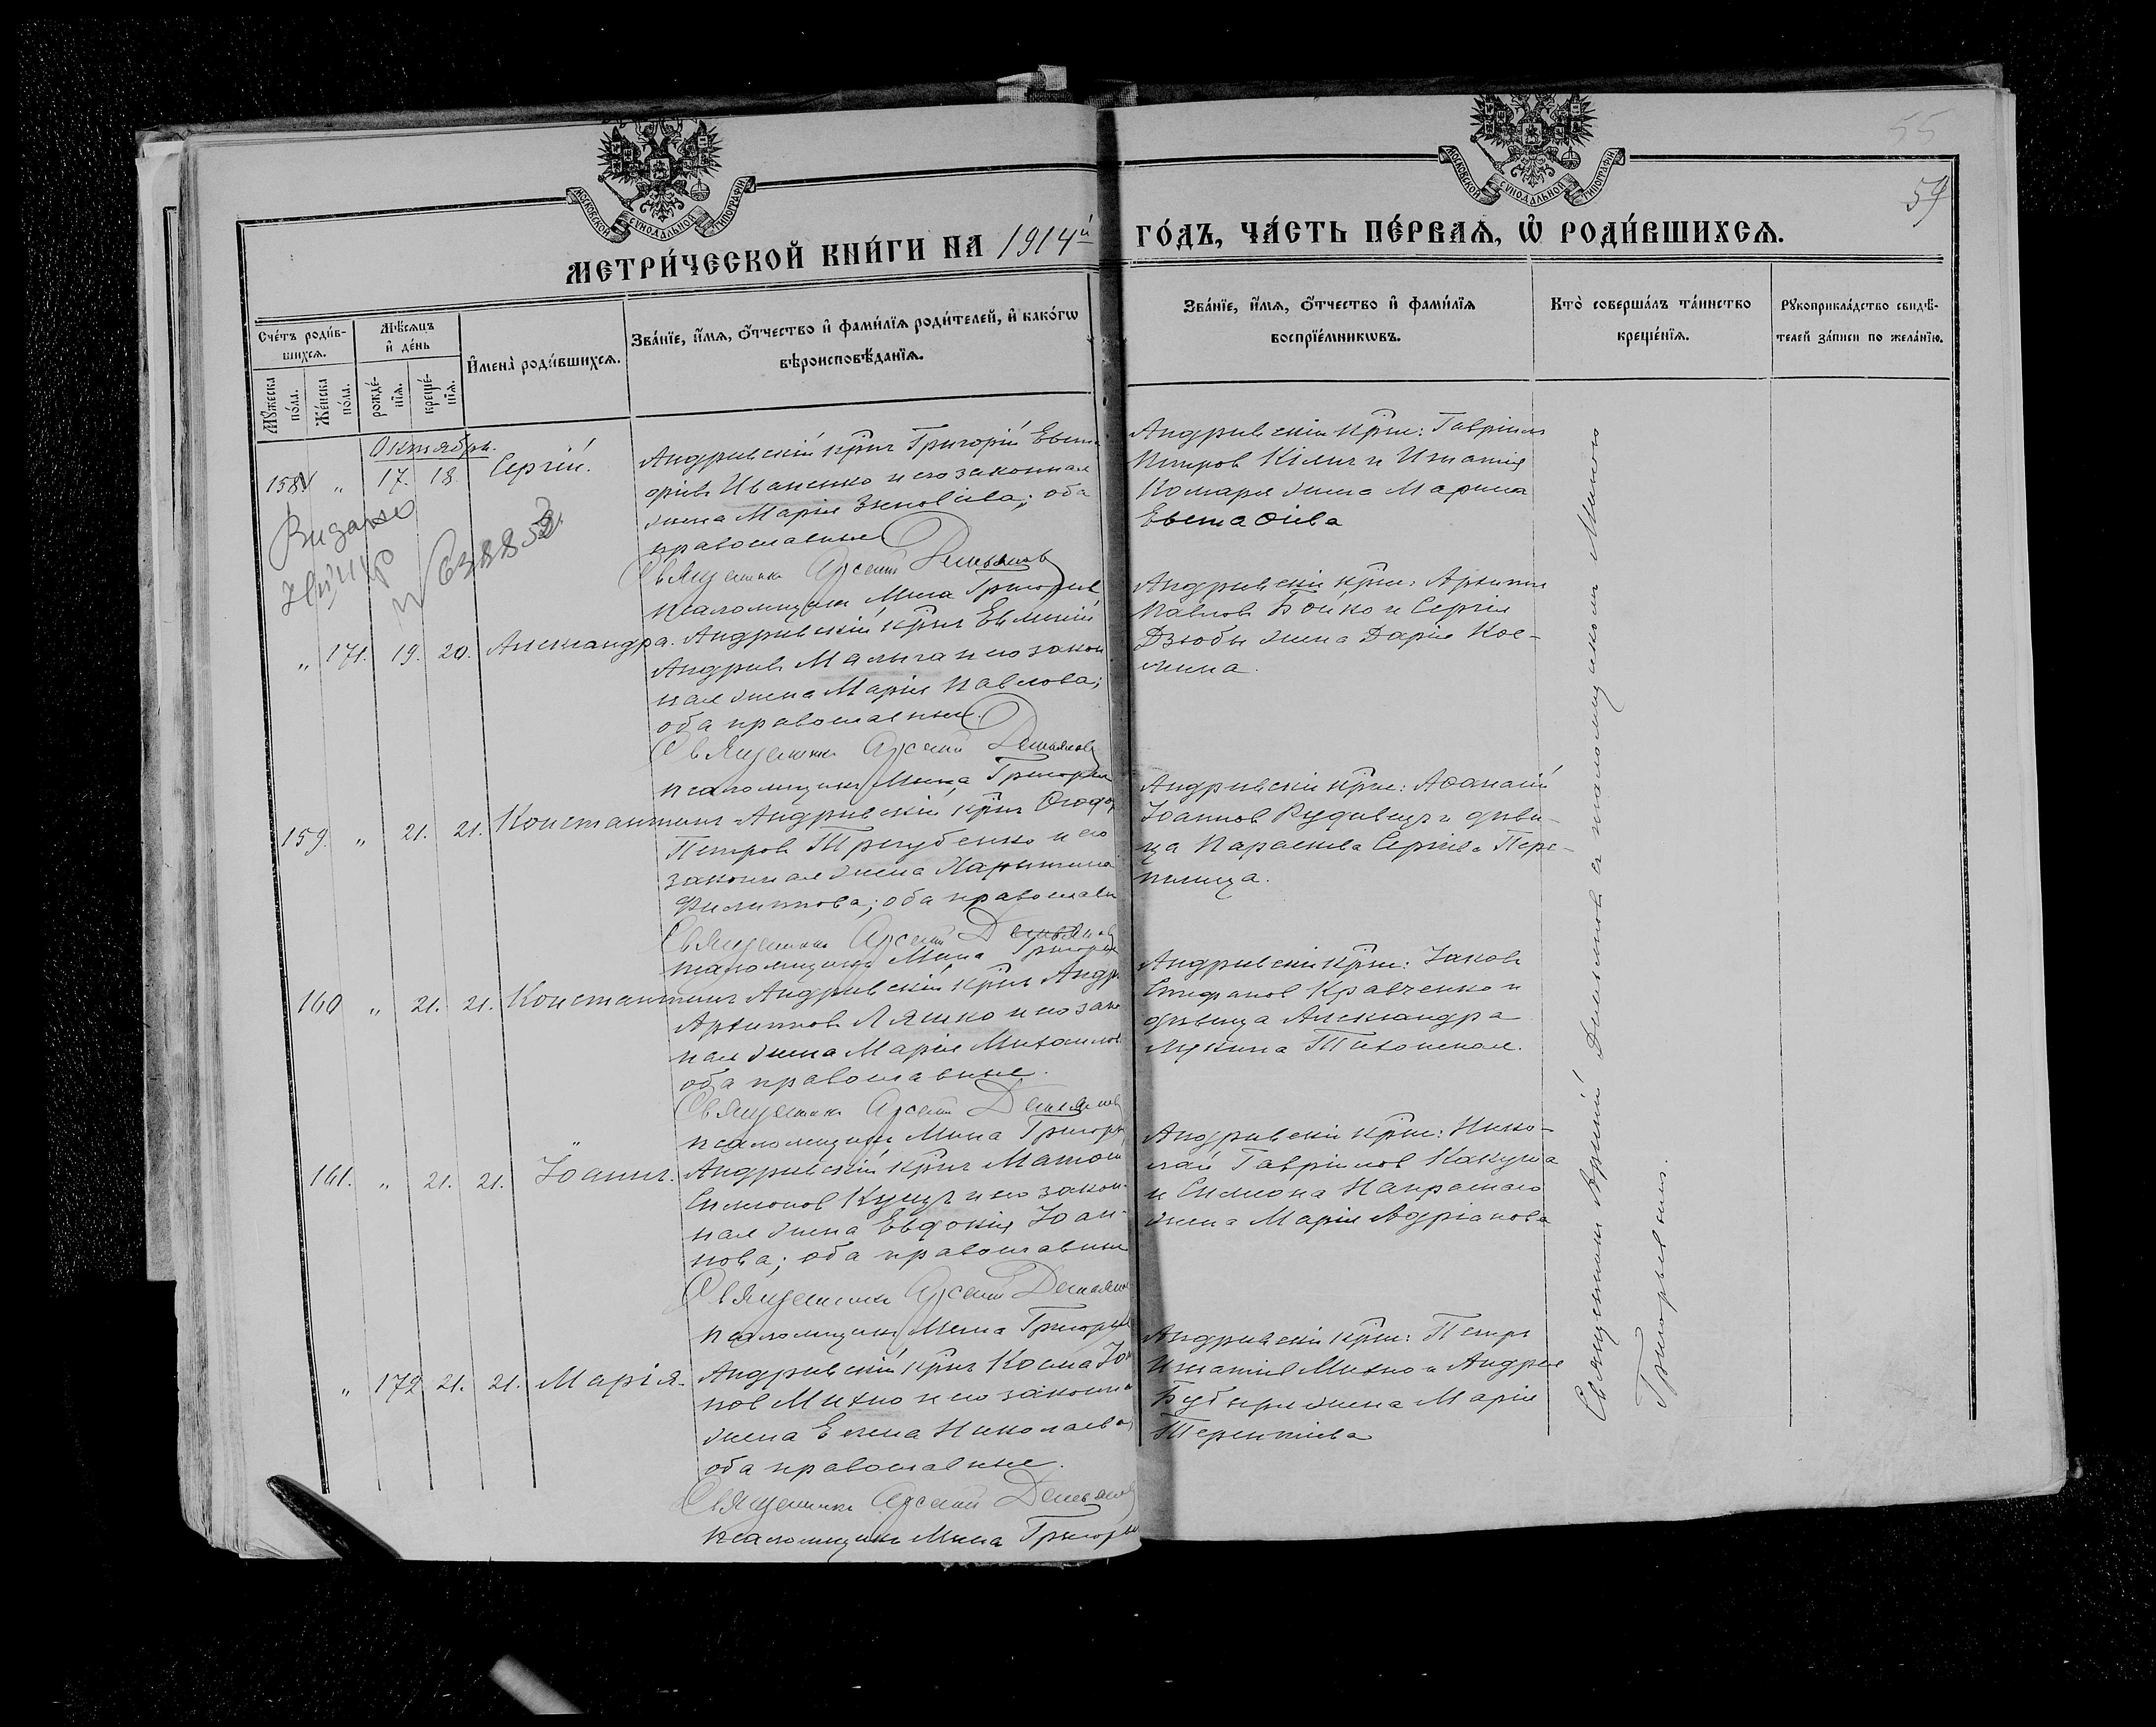 МОСКОВСКОЙ СѴНОДАЛЬНОЙ ТИПОГРАФІИ
МОСКОВСКОЙ СѴНОДАЛЬНОЙ ТИПОГРАФІИ
55
54
МЕТРИ́ЧЕСКОЙ КНИ́ГИ НА 1914й ГО́ДЪ, ЧА́СТЬ ПЕ́РВАѦ, Ѡ҆ РОДИ́ВШИХСѦ.
Сче́тъ роди́в-
шихсѧ.
Мꙋ́жеска по́ла.
Же́нска по́ла.
Мѣ́сѧцъ
и҆ де́нь
рожде́-
нїѧ.
креще́-
нїѧ.
И҆мена̀ роди́вшихсѧ.
Зва́нїе, и҆́мѧ, ѻ҆́тчество и҆ фами́лїѧ роди́телей, и҆ како́гѡ
вѣроисповѣ́данїѧ.
Зва́нїе, и҆́мѧ, ѻ҆́тчество и҆ фами́лїѧ
воспрїе́мникѡвъ.
Кто̀ соверша́лъ та́инство
креще́нїѧ.
Рꙋкоприкла́дство свидѣ́-
телей за́писи по жела́нїю.
Октябрь.
158 „ 17. 18. Сергій.
Андреевскій крнъ Григорій Евста
фіевъ Иваненко и его законная
жена Марія Зиновіева; оба
православные
Священникъ Арсеній Демьяновъ
псаломщикъ Мина Григорьев
Андреевскіе крне: Гавріилъ
Петровъ и Игнатія
Комаря жена Марина
Евстафіева
Видано
„ 171. 19. 20. Александра.
Андреевскій крнъ Евменій
Андреевъ Малыга и его закон
ная жена Марія Павлова;
оба православные.
Священникъ Арсеній Демьяновъ
псаломщикъ Мина Григорьев
Андреевскіе крне: Архипъ
Павловъ Бойко и Сергія
Дзюбы жена Дарія Кос-
мина.
159. „ 21. 21. Константинъ
Андреевскій крнъ Ѳеодор
Петровъ Трегубенко и его
законная жена Харитина
Филиппова; оба православн
Священникъ Арсеній Демьяновъ
псаломщикъ Мина Григорьев
Андреевскіе крне: Аѳанасій
Іоанновъ Рудивецъ и дѣви-
ца Параскева Сергіева Пере-
пелица.
160 „ 21. 21. Константинъ
Андреевскій крнъ Андр
Архиповъ Ляшко и его зако
ная жена Марія Михаилов
оба православные.
Священникъ Арсеній Демьяновъ
псаломщикъ Мина Григорь
Андреевскіе крне: Іаковъ
Епифановъ Кравченко и
дѣвица Александра
Лукина Тихонская.
161. „ 21. 21. Іоаннъ.
Андреевскій крнъ
Симеоновъ Куцъ и его закон-
ная жена Евдокія Іоан-
нова; оба православные
Священникъ Арсеній Демьянов
псаломщикъ Мина Григорьев
Андреевскіе крне: Нико-
лай Гавріиловъ Какуша
и Симеона Напрасного
жена Марія Адріанова
„ 172 21. 21. Марія.
Андреевскій крнъ Косма Іоан
новъ Михно и его законная
жена Елена Николаева;
оба православные.
Священникъ Арсеній Демьяновъ
псаломщикъ Мина Григорьев
Андреевскіе крне: Петръ
Игнатіевъ Михно и Андрея
Бубыри жена Марія
Терентіева
Священникъ Арсеній Демьяновъ съ псаломщикомъ Миною
Григорьевымъ.